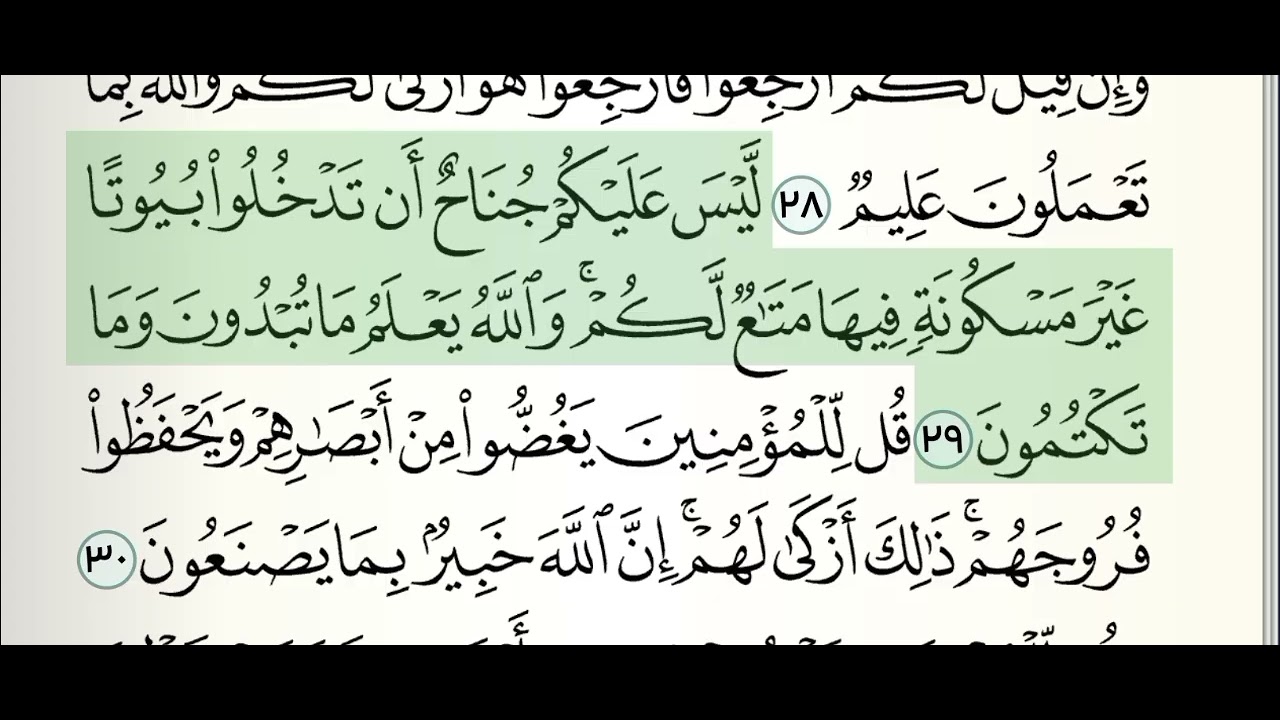 وَإِن قِيلَ لَكُمُ ٱرْجِعُوا۟ فَٱرْجِعُوا۟ هُوَ أَزْكَىٰ لَكُمْ وَٱللَّهُ بِمَا
تَعْمَلُونَ عَلِيمٌ ٢٨ لَّيْسَ عَلَيْكُمْ جُنَاحٌ أَن تَدْخُلُوا۟ بُيُوتًا
غَيْرَ مَسْكُونَةٍ فِيهَا مَتَـٰعٌ لَّكُمْ ۚ وَٱللَّهُ يَعْلَمُ مَا تُبْدُونَ وَمَا
تَكْتُمُونَ ٢٩ قُل لِّلْمُؤْمِنِينَ يَغُضُّوا۟ مِنْ أَبْصَـٰرِهِمْ وَيَحْفَظُوا۟
فُرُوجَهُمْ ۚ ذَٰلِكَ أَزْكَىٰ لَهُمْ ۚ إِنَّ ٱللَّهَ خَبِيرٌۢ بِمَا يَصْنَعُونَ ٣٠